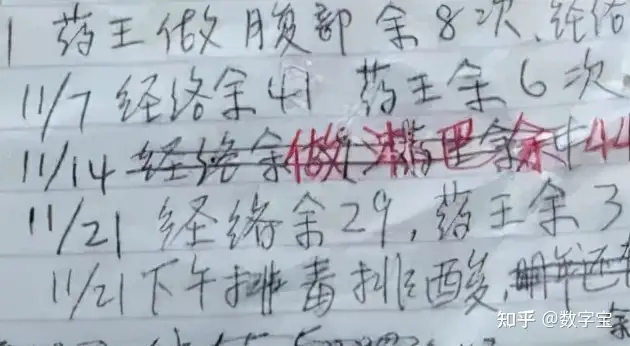 1 药王做腹部余8次、经络
11/7 经络余41 药王余6次
11/14 经络余做淋巴余44
11/21 经络余29,药王余3
11/21下午排毒排酸,明年还有
知乎 @数字宝
余